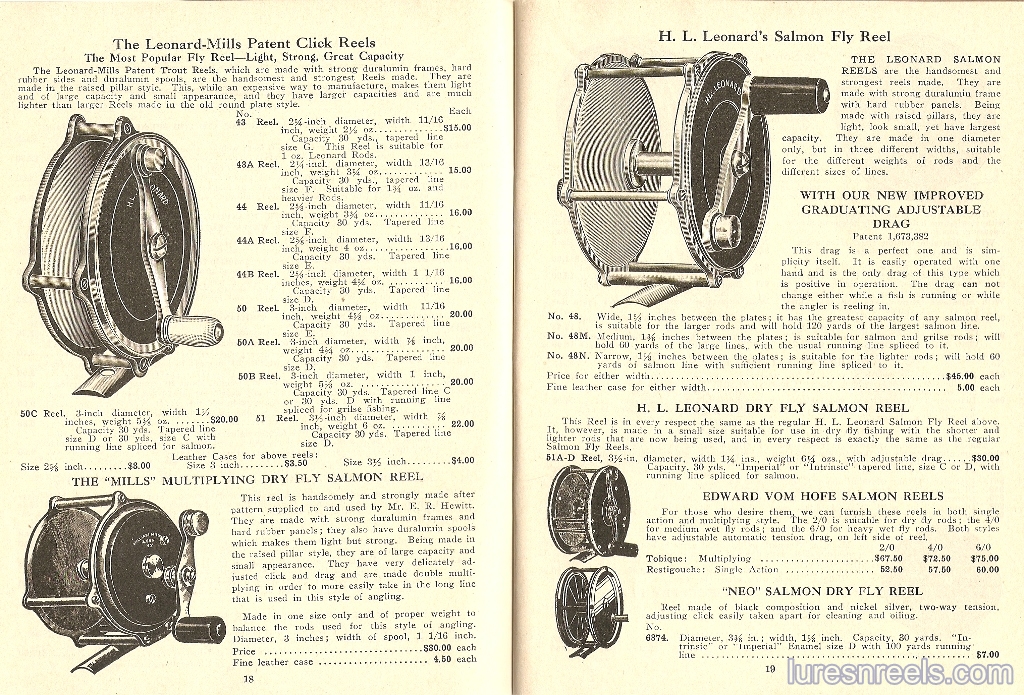 The Leonard-Mills Patent Click Reels
The Most Popular Fly Reel—Light, Strong, Great Capacity
The Leonard-Mills Patent Trout Reels, which are made with strong duralumin frames, hard
rubber sides and duralumin spools, are the handsomest and strongest Reels made. They are
made in the raised pillar style. This, while an expensive way to manufacture, makes them light
and of large capacity and small appearance, and they have larger capacities and are much
lighter than larger Reels made in the old round plate style.
No. Each
43 Reel. 2⅜-inch diameter, width 11/16
inch, weight oz. $15.00
Capacity 30 yds., tapered line
size G. This Reel is suitable for
1 oz. Leonard Rods.
43A Reel. inch diameter, width 13/16
inch, weight oz. 15.00
Capacity 30 yds., tapered line
size F. Suitable for oz. and
heavier Rods.
44 Reel. inch diameter, width 11/16
inch, weight oz. 16.00
Capacity 30 yds. Tapered line
size F.
44A Reel. inch diameter, width 13/16
inch, weight 4 oz. 16.00
Capacity 30 yds. Tapered line
size E.
44B Reel. inch diameter, width 1 1/16
inches, weight oz. 16.00
Capacity 30 yds. Tapered line
size D.
50 Reel. 3-inch diameter, width 11/16
inch, weight oz. 20.00
Capacity 30 yds. Tapered line
size E.
50A Reel. 3-inch diameter, width ⅞ inch,
weight oz. 20.00
Capacity 30 yds. Tapered line
size D.
50B Reel. 3-inch diameter, width 1 inch,
weight oz. 20.00
Capacity 30 yds. Tapered line C
or 30 yds. D with running line
spliced for grilse fishing.
50C Reel. 3-inch diameter, width
inches, weight oz. $20.00
Capacity 30 yds. Tapered line
size D or 30 yds. size C with
running line spliced for salmon.
51 Reel. inch diameter, width ⅞
inch, weight 6 oz. 22.00
Capacity 30 yds. Tapered line
size D.
Leather Cases for above reels:
Size inch $3.00 Size 3 inch $3.50 Size inch $4.00
THE "MILLS" MULTIPLYING DRY FLY SALMON REEL
This reel is handsomely and strongly made after
pattern supplied to and used by Mr. E. R. Hewitt.
They are made with strong duralumin frames and
hard rubber panels; they also have duralumin spools
which makes them light but strong. Being made in
the raised pillar style, they are of large capacity and
small appearance. They have very delicately ad-
justed click and drag and are made double multi-
plying in order to more easily take in the long line
that is used in this style of angling.
Made in one size only and of proper weight to
balance the rods used for this style of angling.
Diameter, 3 inches; width of spool, 1 1/16 inch.
Price $30.00 each
Fine leather case 4.50 each
18
H. L. Leonard's Salmon Fly Reel
H.L. LEONARD
THE LEONARD SALMON
REELS are the handsomest and
strongest reels made. They are
made with strong duralumin frame
with hard rubber panels. Being
made with raised pillars, they are
light, look small, yet have largest
capacity. They are made in one diameter
only, but in three different widths, suitable
for the different weights of rods and the
different sizes of lines.
WITH OUR NEW IMPROVED
GRADUATING ADJUSTABLE
DRAG
Patent 1,673,382
This drag is a perfect one and is sim-
plicity itself. It is easily operated with one
hand and is the only drag of this type which
is positive in operation. The drag can not
change either while a fish is running or while
the angler is reeling in.
No. 48. Wide, inches between the plates; it has the greatest capacity of any salmon reel,
is suitable for the larger rods and will hold 120 yards of the largest salmon line.
No. 48M. Medium, inches between the plates; is suitable for salmon and grilse rods; will
hold 60 yards of the large lines, with the usual running line spliced to it.
No. 48N. Narrow, inches between the plates; is suitable for the lighter rods; will hold 60
yards of salmon line with suficient running line spliced to it.
Price for either width $45.00 each
Fine leather case for either width 5.00 each
H. L. LEONARD DRY FLY SALMON REEL
This Reel is in every respect the same as the regular H. L. Leonard Salmon Fly Reel above.
It, however, is made in a small size suitable for use in dry fly fishing with the shorter and
lighter rods that are now being used, and in every respect is exactly the same as the regular
Salmon Fly Reels.
51A-D Reel, in. diameter, width ins., weight oz., with adjustable drag $30.00
Capacity, 30 yds. "Imperial" or "Intrinsic" tapered line, size C or D, with
running line spliced for salmon.
EDWARD VOM HOFE SALMON REELS
For those who desire them, we can furnish these reels in both single
action and multiplying style. The 2/0 is suitable for dry fly rods; the 4/0
for medium wet fly rods; and the 6/0 for heavy wet fly rods. Both styles
have adjustable automatic tension drag, on left side of reel.
2/0 4/0 6/0
Tobique: Multiplying $67.50 $72.50 $75.00
Restigouche: Single Action 52.50 57.50 60.00
"NEO" SALMON DRY FLY REEL
Reel made of black composition and nickel silver, two-way tension,
adjusting click easily taken apart for cleaning and oiling.
No.
6374. Diameter, in.; width, inch. Capacity, 30 yards. "In-
trinsic" or "Imperial" Enamel size D with 100 yards running
line $7.00
19
luresnreels.com